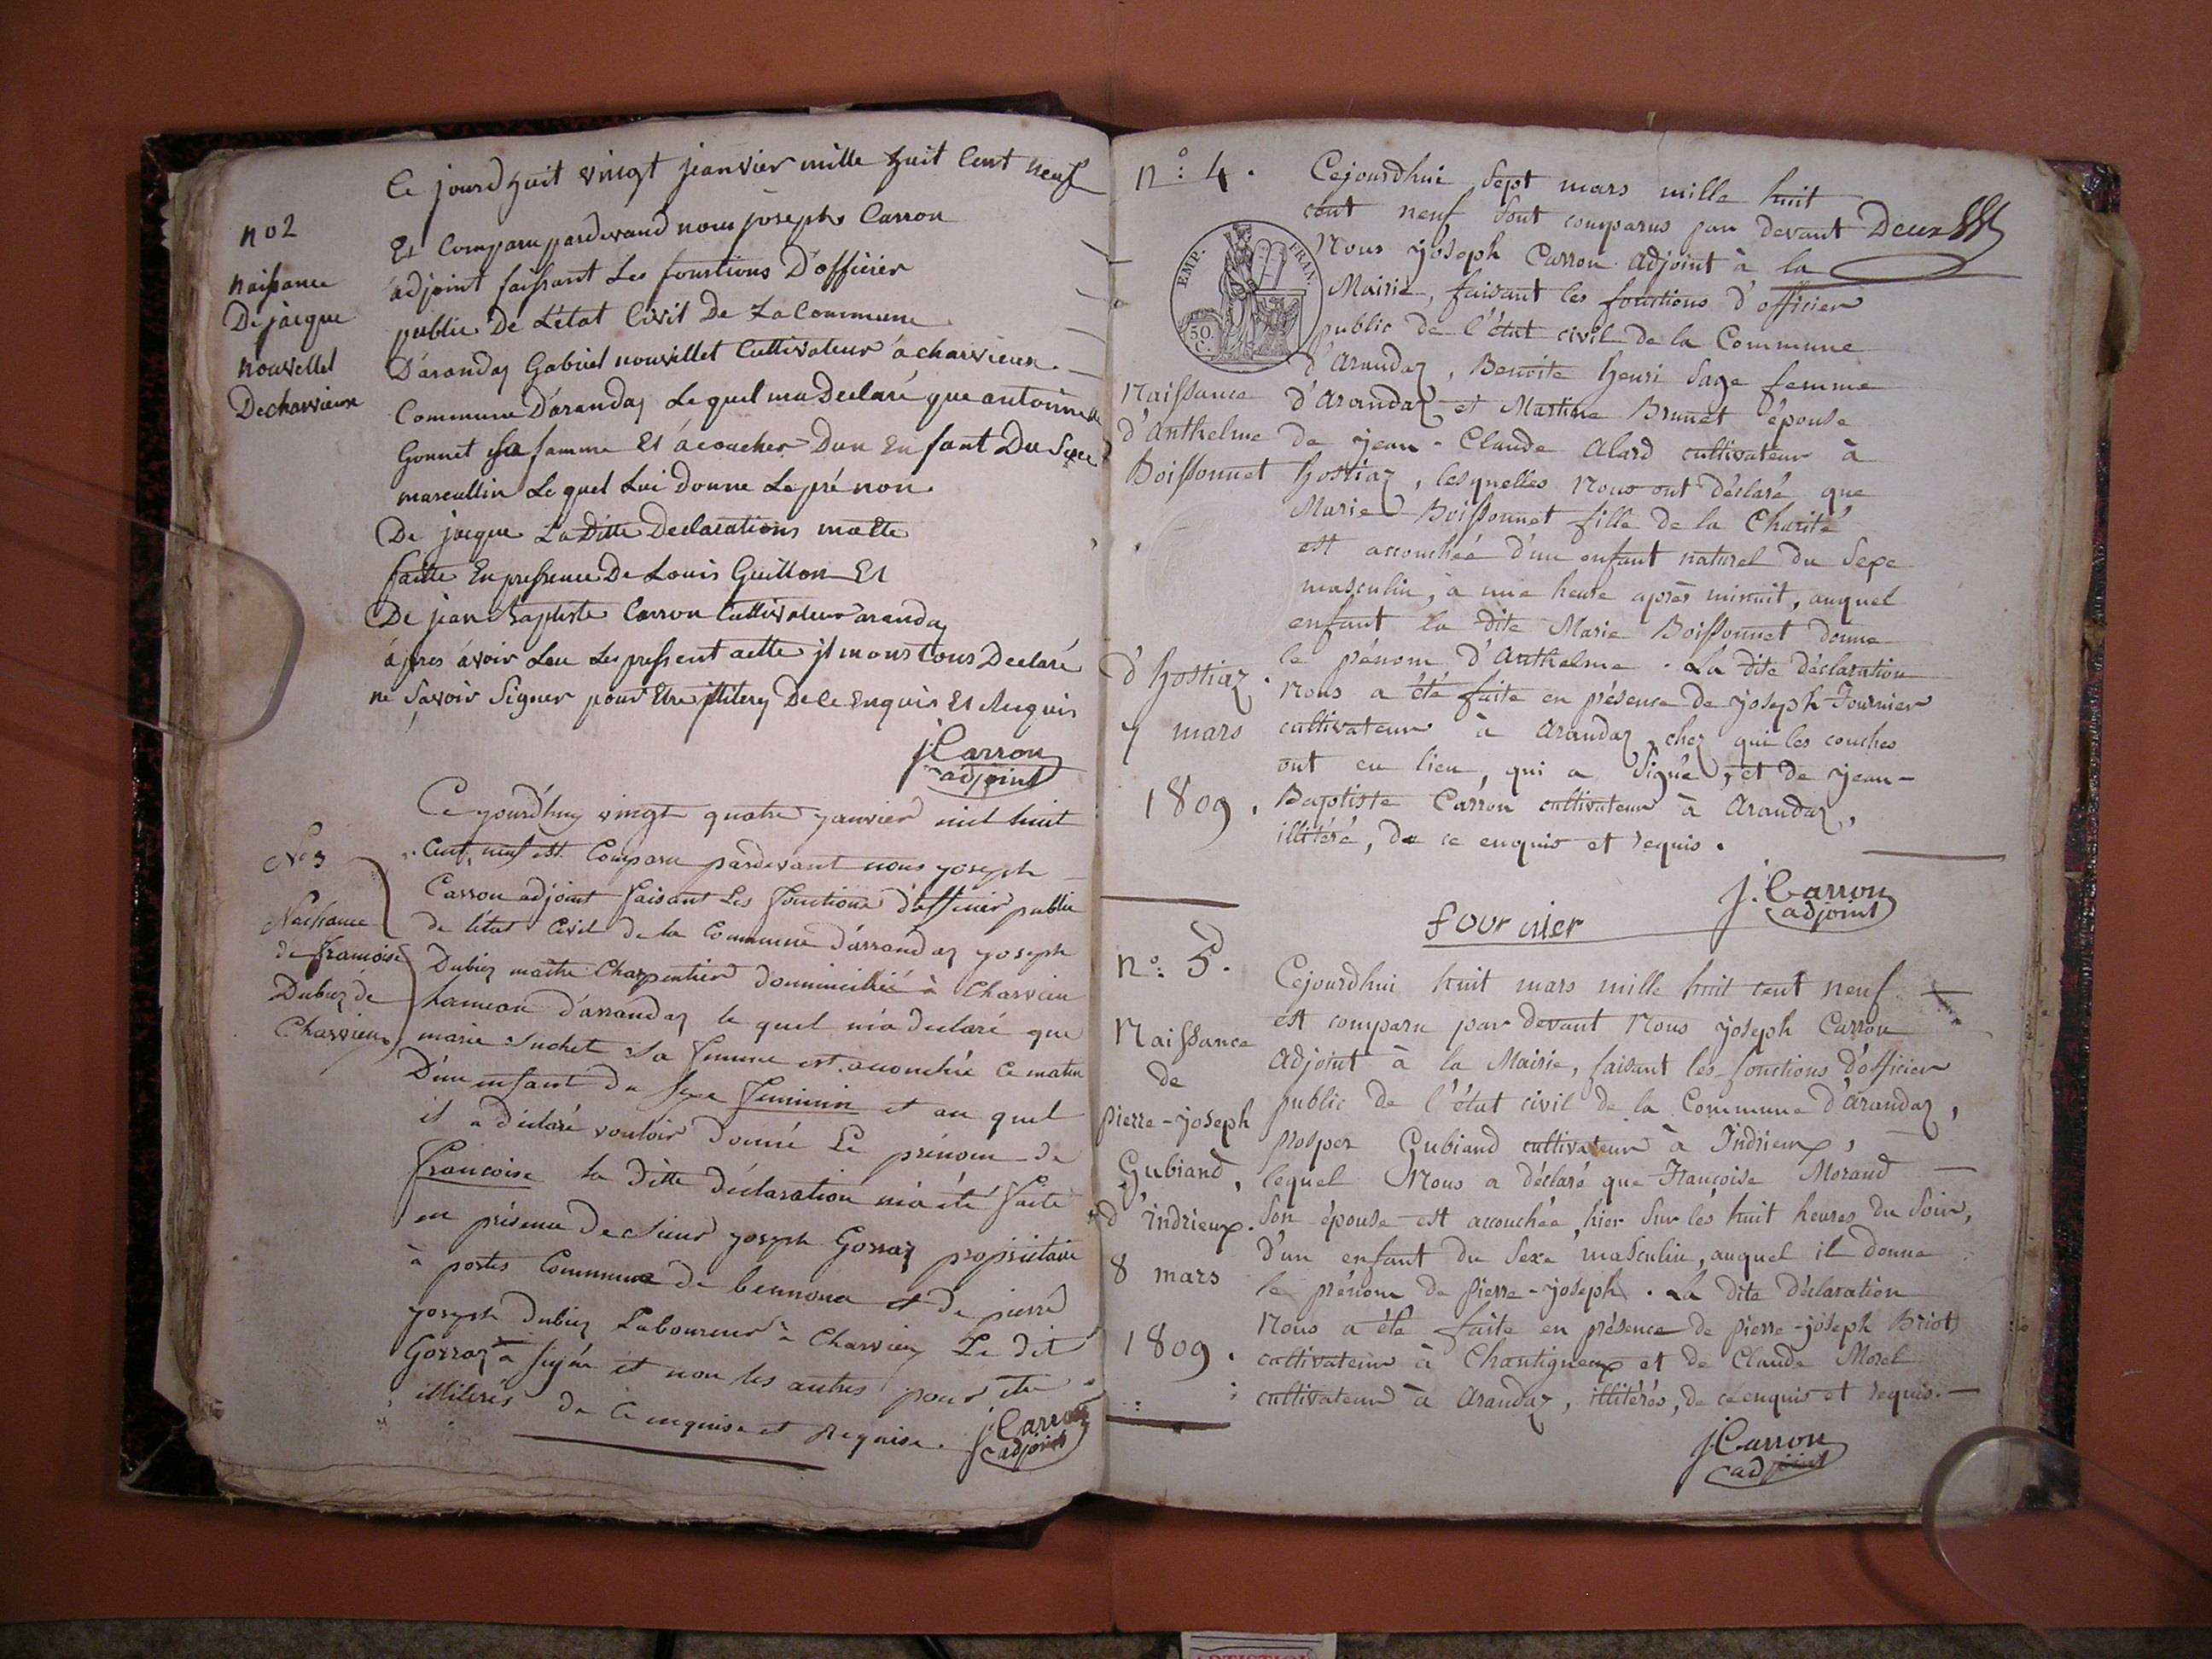 Ce jourd huit vingt jeanvier mille huit Cent neuf
no 2
Et Comparu pardevand nous joseph Carron
adjoint faissant Les fonstions D'officier
naissance
De jacque
publie De L'état Civil De La Commune
nouvellet
D'arandas Gabriel nouvellet Cultivateur a charvieux
De charvieux
Commune D'arandas Le quel ma Declaré que antoinette
Gonnet sa famme Et acoucher Dun Enfant Du Sexe
mascullin Le quel Lui Donne Le prénon
De jacque La Ditte Declarations matte
faitte En pressence De Louis Guillon Et
De jean baptiste Carron Cultivateur arandas
apres avoir Leu Les pressent actte jl mons tous Declaré
ne Savoir Signer pour Etre jlliterz De ce Enquis Et Requis
j Carron
adjoint
Ce yourd'huy vingt quatre yanvier mil huit
No 3
Cent neuf est Comparu pardevant nous yoseph
Carron adjoint faisant Les fonctions d'officier public
Naissance
de l'état Civil de la Commune d'arrandas yoseph
de francoise
Dubiez maitre Charpentier dommicillié à Charvieu
Dubiez de
hameau d'arrandas le quel m'a declaré que
Charvieux
marie Suchet Sa femme est accouchée Ce matin
D'un enfant du Sexe feminin et au quel
il a déclaré vouloir donné Le prénom de
francoise la Ditte déclaration m'a été faite
en présence de Sieur yoseph Gorraz propriétaire
à portes Commune de bennonce et de pierre
yoseph dubiez Laboureur à Charvieu Le dit
Gorraz a signé et non les autres pour etre
illiterés de Ce enquise et Requise.
j. Carron
adjoint
n°: 4.
Cejourdhui Sept mars mille huit
cent neuf Sont comparus par devant Deux
Nous joseph Carron adjoint à la
EMP. FRAN.
50 C.
Mairie, faisant les fonctions d'officier
public de l'état civil de la Commune
d'arandaz, Benoite henri Sage femme
Naissance
d'arandaz et Martine Brunet épouse
d'Anthelme
de jean-Claude Alard cultivateur à
Boissonnet
hostiaz, lesquelles Nous ont déclaré que
Marie Boissonnet fille de la Charité
est accouchée d'un enfant naturel du Sexe
masculin, à une heure après minuit, auquel
enfant la dite Marie Boissonnet donne
d'hostiaz.
le prénom d'Anthelme. La dite déclaration
Nous a été faite en présence de joseph Fournier
7 mars
cultivateur à arandaz, chez qui les couches
ont eu lieu, qui a Signé, et de jean-
1809.
Baptiste Carron cultivateur à Arandaz,
illitéré, de ce enquis et requis.
J. Carron
adjoint
fournier
n°: 5.
Cejourdhui huit mars mille huit cent neuf
est comparu par devant Nous joseph Carron
Naissance
Adjoint à la Mairie, faisant les fonctions d'officier
de
public de l'état civil de la Commune d'arandaz,
pierre-joseph
prosper Gubiand cultivateur à Indrieux,
Gubiand,
lequel Nous a déclaré que Françoise Morand
d'indrieux.
Son épouse est accouchée, hier Sur les huit heures du Soir,
d'un enfant du Sexe masculin, auquel il donne
8 mars
le prénom de pierre-joseph. La dite déclaration
Nous a été faite en présence de pierre-joseph Briot
1809.
cultivateur à Chantigneux et de Claude Morel
cultivateur à Arandaz, illitérés, de ce enquis et requis.
j Carron
adjoint